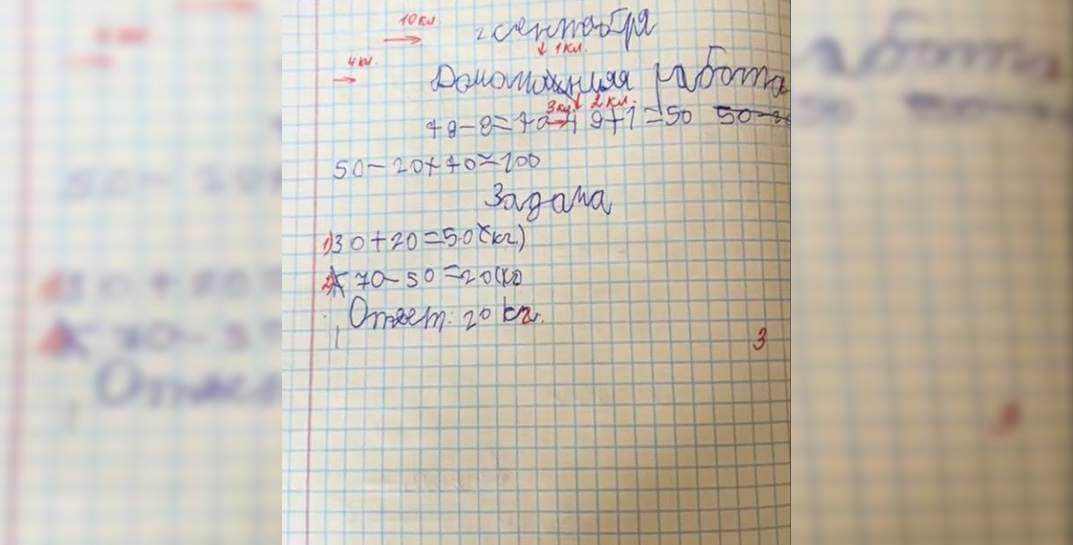 10 кл
2 сентября
↓ 1 кл.
4 кл.
Домашняя работа
3 кл. 2 кл.
48-8=40 49+1=50 50-
50-20+70=100
Задача
1) 30+20=50 (кг)
2) 70-50=20 (кг)
Ответ: 20 кг.
3